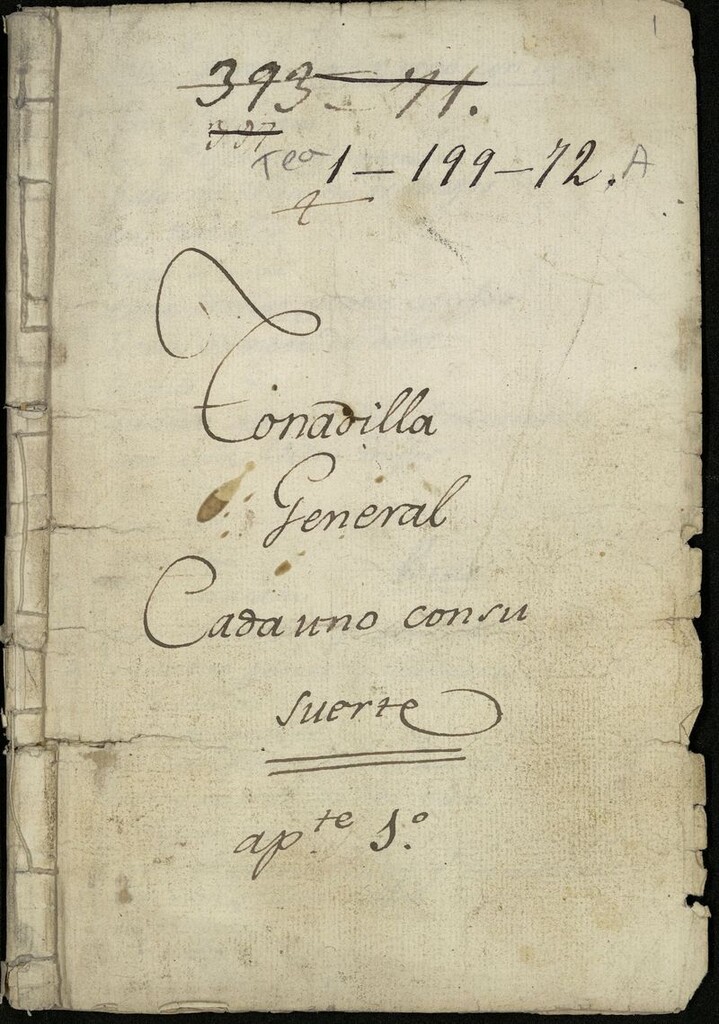 1
393 - 71.
Tea 1-199-72. A
4
Tonadilla
General
Cada uno consu
suerte
ap.te 1.o